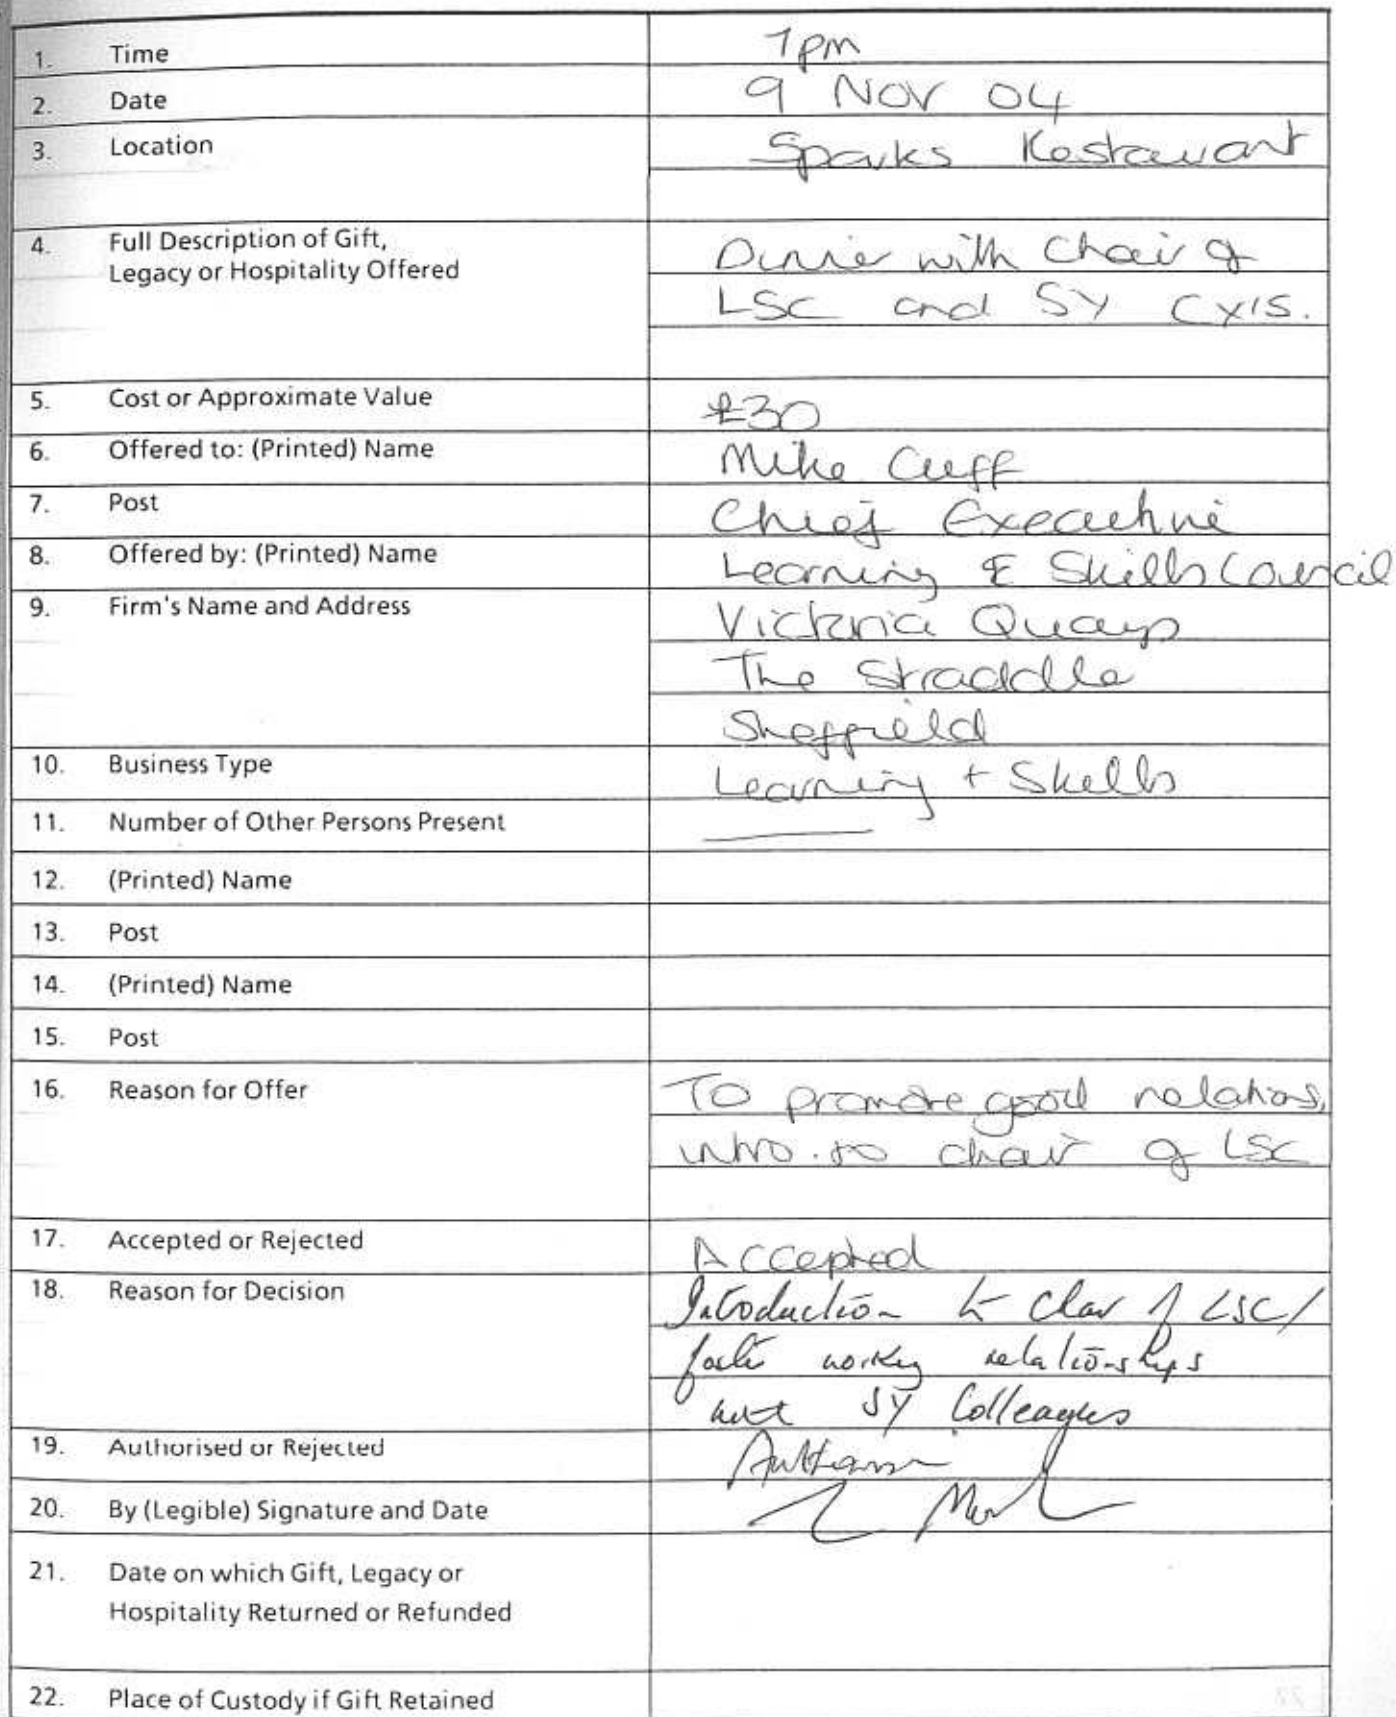 1. Time 7pm
2. Date 9 NOV 04
3. Location Sparks Restaurant
4. Full Description of Gift,
Legacy or Hospitality Offered
Dinner with Chair of
LSC and SY CX's.
5. Cost or Approximate Value £30
6. Offered to: (Printed) Name Mike Cuff
7. Post Chief Executive
8. Offered by: (Printed) Name Learning & Skills Council
9. Firm's Name and Address Victoria Quays
The Straddle
Sheffield
10. Business Type Learning + Skills
11. Number of Other Persons Present
12. (Printed) Name
13. Post
14. (Printed) Name
15. Post
16. Reason for Offer To promote good relations,
intro. to chair of LSC
17. Accepted or Rejected Accepted
18. Reason for Decision Introduction to Chair of LSC/
foster working relationships
with SY Colleagues
19. Authorised or Rejected
20. By (Legible) Signature and Date
21. Date on which Gift, Legacy or
Hospitality Returned or Refunded
22. Place of Custody if Gift Retained